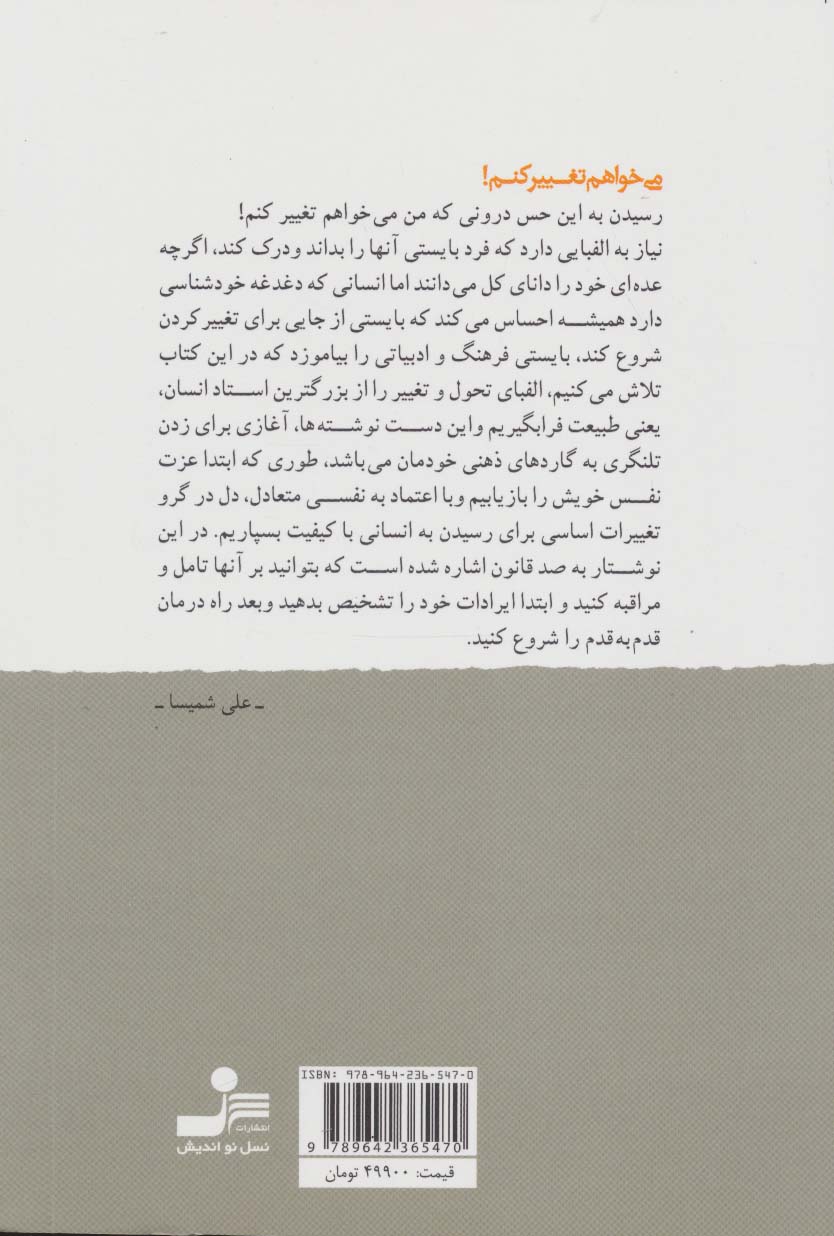 می‌خواهم تغییر کنم!
رسیدن به این حس درونی که من می‌خواهم تغییر کنم!
نیاز به الفبایی دارد که فرد بایستی آنها را بداند ودرک کند، اگرچه
عده‌ای خود را دانای کل می‌دانند اما انسانی که دغدغه خودشناسی
دارد همیشه احساس می‌کند که بایستی از جایی برای تغییرکردن
شروع کند، بایستی فرهنگ و ادبیاتی را بیاموزد که در این کتاب
تلاش می‌کنیم، الفبای تحول و تغییر را از بزرگترین استاد انسان،
یعنی طبیعت فرابگیریم واین دست نوشته‌ها، آغازی برای زدن
تلنگری به گاردهای ذهنی خودمان می‌باشد، طوری که ابتدا عزت
نفس خویش را بازیابیم وبا اعتماد به نفسی متعادل، دل در گرو
تغییرات اساسی برای رسیدن به انسانی با کیفیت بسپاریم. در این
نوشتار به صد قانون اشاره شده است که بتوانید بر آنها تامل و
مراقبه کنید و ابتدا ایرادات خود را تشخیص بدهید وبعد راه درمان
قدم‌به‌قدم را شروع کنید.
ـ علی شمیسا ـ
ISBN: 978-964-236-547-0
9 789642 365470
قیمت: ۴۹۹۰۰ تومان
انتشارات
نسل نو اندیش